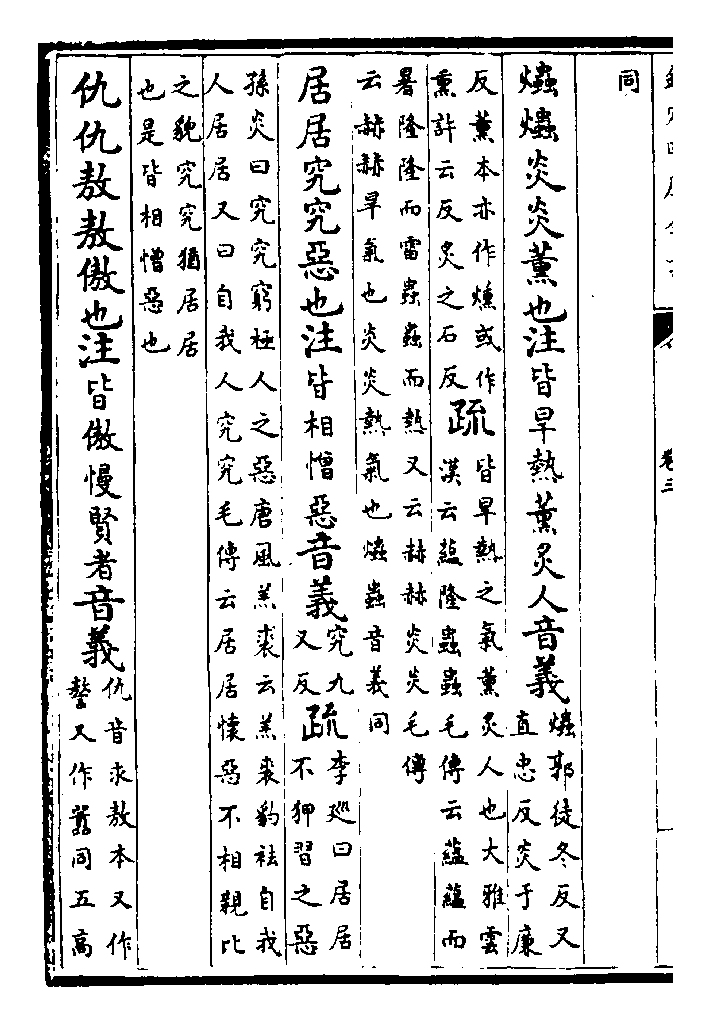 卷三
同
爞爞炎炎薰也注皆旱熱薰炙人音義爞郭徒冬反又直忠反炎于廉
反薰本亦作燻或作熏許云反炙之石反疏皆旱熱之氣薰炙人也大雅雲漢云藴隆蟲蟲毛傳云蘊蘊而
暑隆隆而雷蟲蟲而熱又云赫赫炎炎毛傳云赫赫旱氣也炎炎熱氣也爞蟲音義同
居居究究惡也注皆相憎惡音義究九又反疏李廵曰居居不狎習之惡
孫炎曰究究窮極人之惡唐風羔裘云羔裘豹袪自我人居居又曰自我人究究毛傳云居居懷惡不相親比
之貌究究猶居居也是皆相憎惡也
仇仇敖敖傲也注皆傲慢賢者音義仇音求敖本又作謷又作嚻同五高